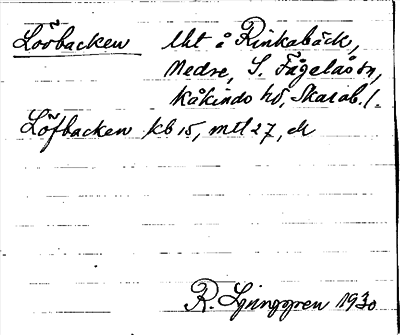 Lövbacken lht å Rinkabäck,
Nedre, S. Fågelås sn,
Kåkinds hd, Skarab. l.
Löfbacken kb 15, mtl 27, dr
R. Ljunggren 1930